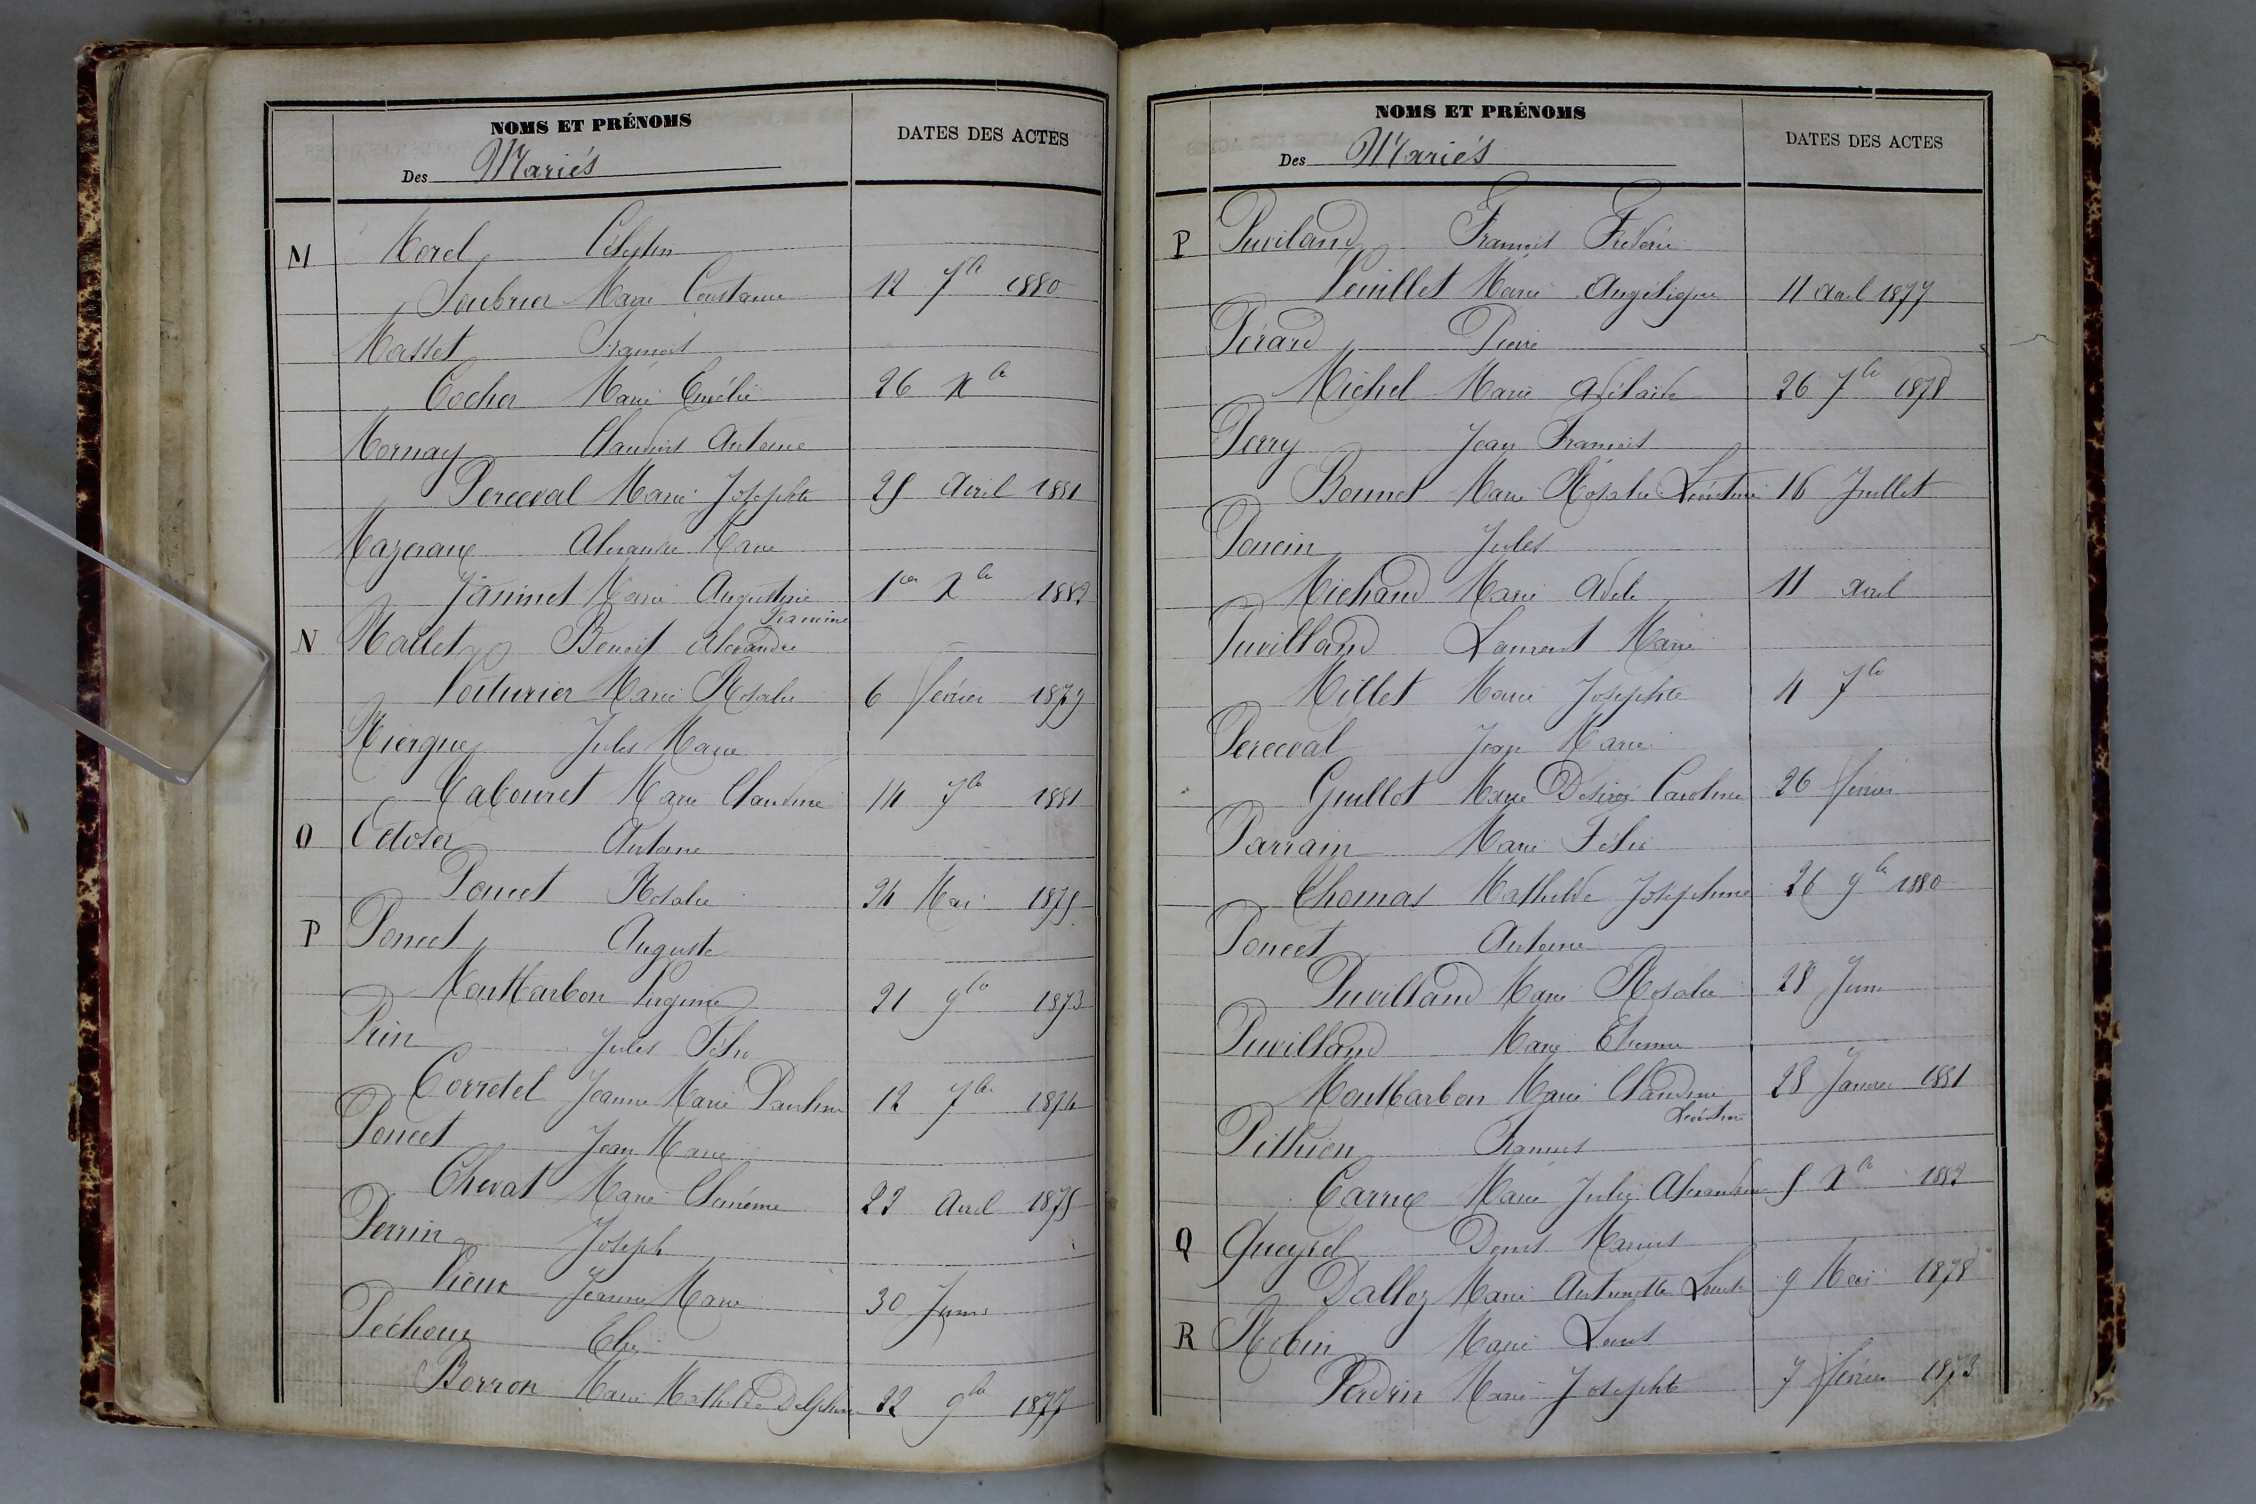 NOMS ET PRÉNOMS
Des Mariés
DATES DES ACTES
M Morel Célestin
Soubrier Marie Constance 12 7bre 1880
Masset François
Cocher Marie Emélie 26 Xbre
Mornay Claudius Antoine
Perceval Marie Josephte 25 Avril 1881
Mazeraux Alexandre Marie
Janinet Marie Augustine 1er Xbre 1882
Francine
N Mallet Benoit Alexandre
Voiturier Marie Rosalie 6 février 1879
Niergue Jules Marie
Cabouret Marie Claudine 14 7bre 1881
O Oetoser Antoine
Poncet Rosalie 24 Mai 1875
P Poncet Auguste
Montbarbon Eugénie 21 9bre 1873
Prin Jules Félix
Corretel Jeanne Marie Pauline 12 7bre 1874
Poncet Jean Marie
Chevat Marie Clémence 22 Avril 1875
Perrin Joseph
Vieux Jeanne Marie 30 Juin
Péchoux Elie
Borron Marie Mathilde Delphine 22 9bre 1877
NOMS ET PRÉNOMS
Des Mariés
DATES DES ACTES
P Puviland François Fréderic
Veuillet Marie Angélique 11 avril 1877
Pérard Pierre
Michel Marie Adélaïde 26 7bre 1878
Perry Jean François
Bonnet Marie Rosalie Léontine 16 Juillet
Poncin Jules
Michaud Marie Adèle 11 avril
Puvilland Laurent Marie
Millet Marie Josephte 4 7bre
Perceval Jean Marie
Guillot Marie Désirée Caroline 26 février
Parrain Marie Félix
Thomas Mathilde Joséphine 26 9bre 1880
Poncet Antoine
Puvilland Marie Rosalie 28 Juin
Puvilland Marie Etienne
Montbarbon Marie Claudine 28 Janvier 1881
Léontine
Pithion François
Carrue Marie Julie Alexandrine 5 Xbre 1882
Q Queyrel Denis Marius
Dalloz Marie Antoinette Lucile 9 Mai 1878
R Robin Marie Louis
Perdrix Marie Josephte 7 février 1873